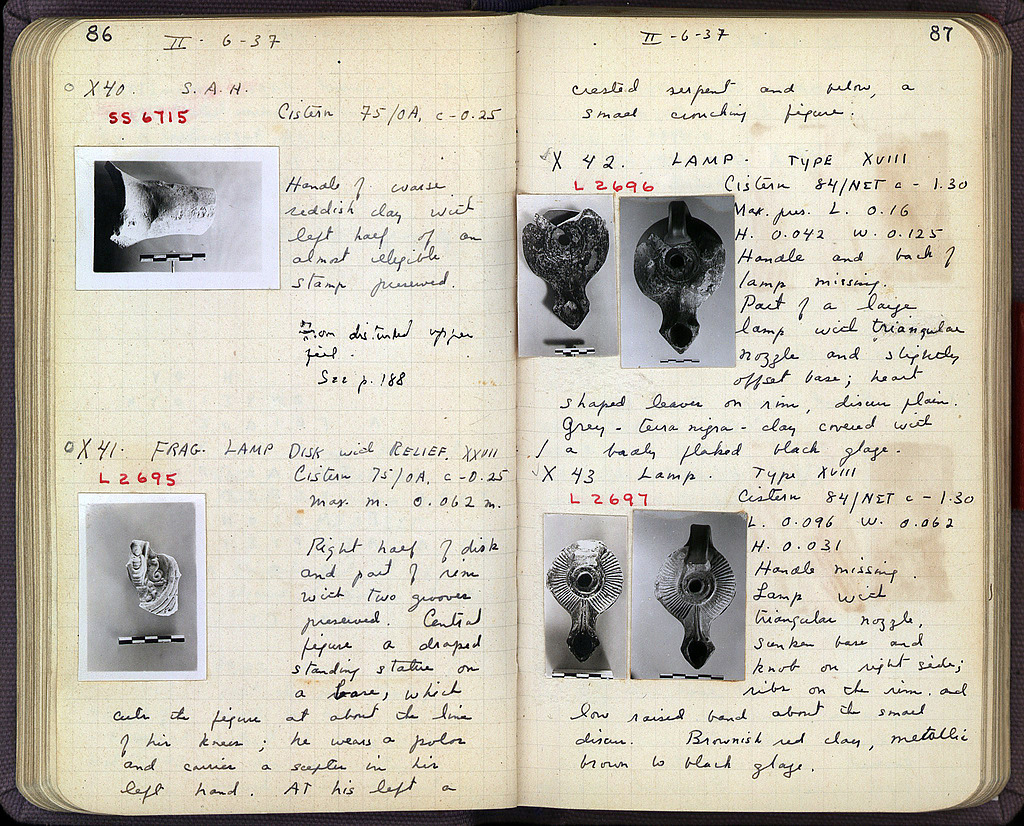 86
II - 6-37
X40. S.A.H.
SS 6715
Cistern 75/OA, c-0.25
Handle of coarse
reddish clay with
left half of an
almost illegible
stamp preserved.
From disturbed upper
fill.
See p. 188
X41. FRAG. LAMP DISK with RELIEF. XXVII
L 2695
Cistern 75/OA, c-0.25
Max. m. 0.062 m.
Right half of disk
and part of rim
with two grooves
preserved. Central
figure a draped
standing statue on
a base, which
cuts the figure at about the line
of his knees; he wears a polos
and carries a scepter in his
left hand. At his left a
87
II - 6-37
crested serpent and below, a
small crouching figure.
X 42. LAMP. TYPE XVIII
L 2696
Cistern 84/NET c - 1.30
Max. pres. L. 0.16
H. 0.042 W. 0.125
Handle and back of
lamp missing.
Part of a large
lamp with triangular
nozzle and slightly
offset base; heart
shaped leaves on rim, discus plain.
Grey - terra nigra - clay covered with
a badly flaked black glaze.
X 43 Lamp. Type XVIII
L 2697
Cistern 84/NET c - 1.30
L. 0.096 W. 0.062
H. 0.031
Handle missing.
Lamp with
triangular nozzle,
sunken base and
knob on right side;
ribs on the rim and
low raised band about the small
discus. Brownish red clay, metallic
brown to black glaze.